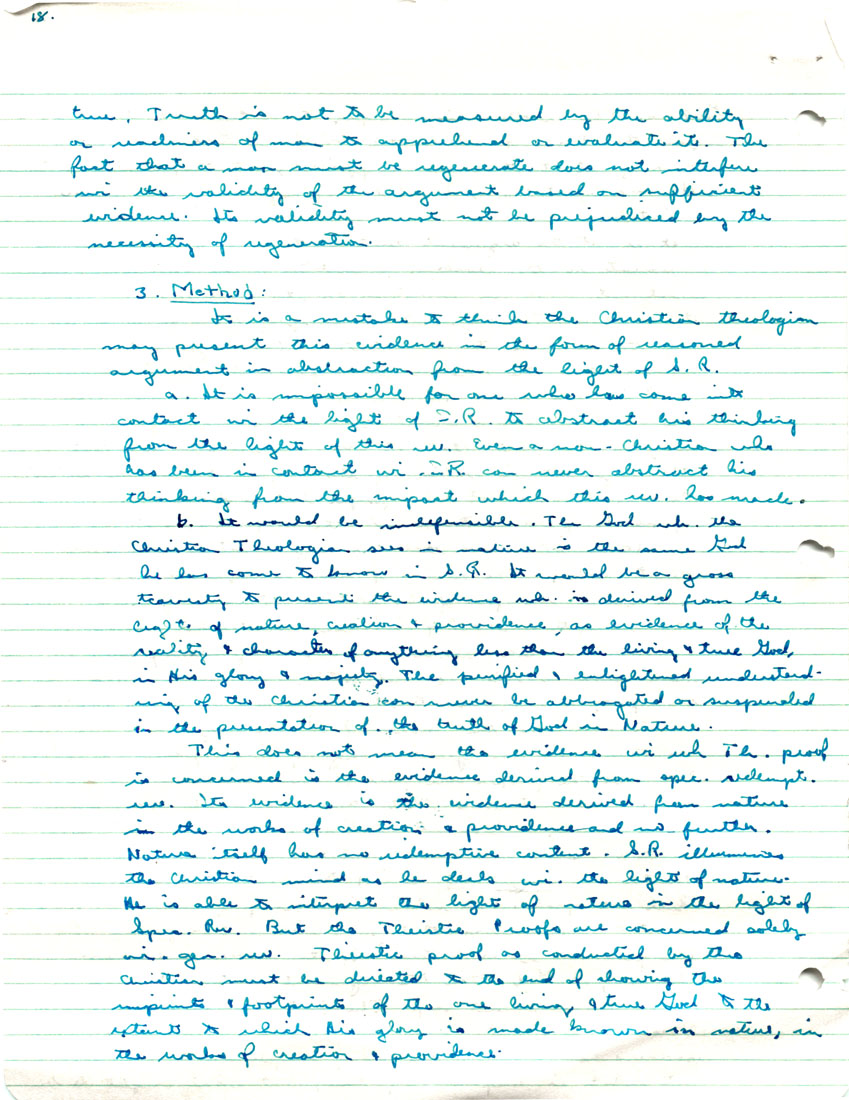 18.
true. Truth is not to be measured by the ability
or readiness of man to apprehend or evaluate it. The
fact that a man must be regenerate does not interfere
wi the validity of the argument based on sufficient
evidence. Its validity must not be prejudiced by the
necessity of regeneration.
3. Method:
It is a mistake to think the Christian theologian
may present this evidence in the form of reasoned
argument in abstraction from the light of S.R.
a. It is impossible for one who has come into
contact wi the light of S.R. to abstract his thinking
from the light of this rev. Even a non-Christian who
has been in contact wi S.R. can never abstract his
thinking from the impact which this rev. has made.
b. It would be indefensible. The God wh. the
Christian Theologian sees in nature is the same God
he has come to know in S.R. It would be a gross
travesty to present the evidence wh. is derived from the
light of nature, creation & providence, as evidence of the
reality & character of anything less than the living & true God,
in His glory & majesty. The purified & enlightened understand-
ing of the Christian can never be abbrogated or suspended
in the presentation of the truth of God in Nature.
This does not mean the evidence wi wh Th. proof
is concerned is the evidence derived from spec. redempt.
rev. Its evidence is the evidence derived from nature
in the works of creation & providence and no further.
Nature itself has no redemptive content. S.R. illumines
the Christian mind as he deals wi. the light of nature.
He is able to interpret the light of nature in the light of
Spec. Rev. But the Theistic Proofs are concerned solely
wi. gen. rev. Theistic proof as conducted by the
Christian must be directed to the end of showing the
imprints & footprints of the one living & true God to the
extent to which His glory is made known in nature, in
the works of creation & providence.